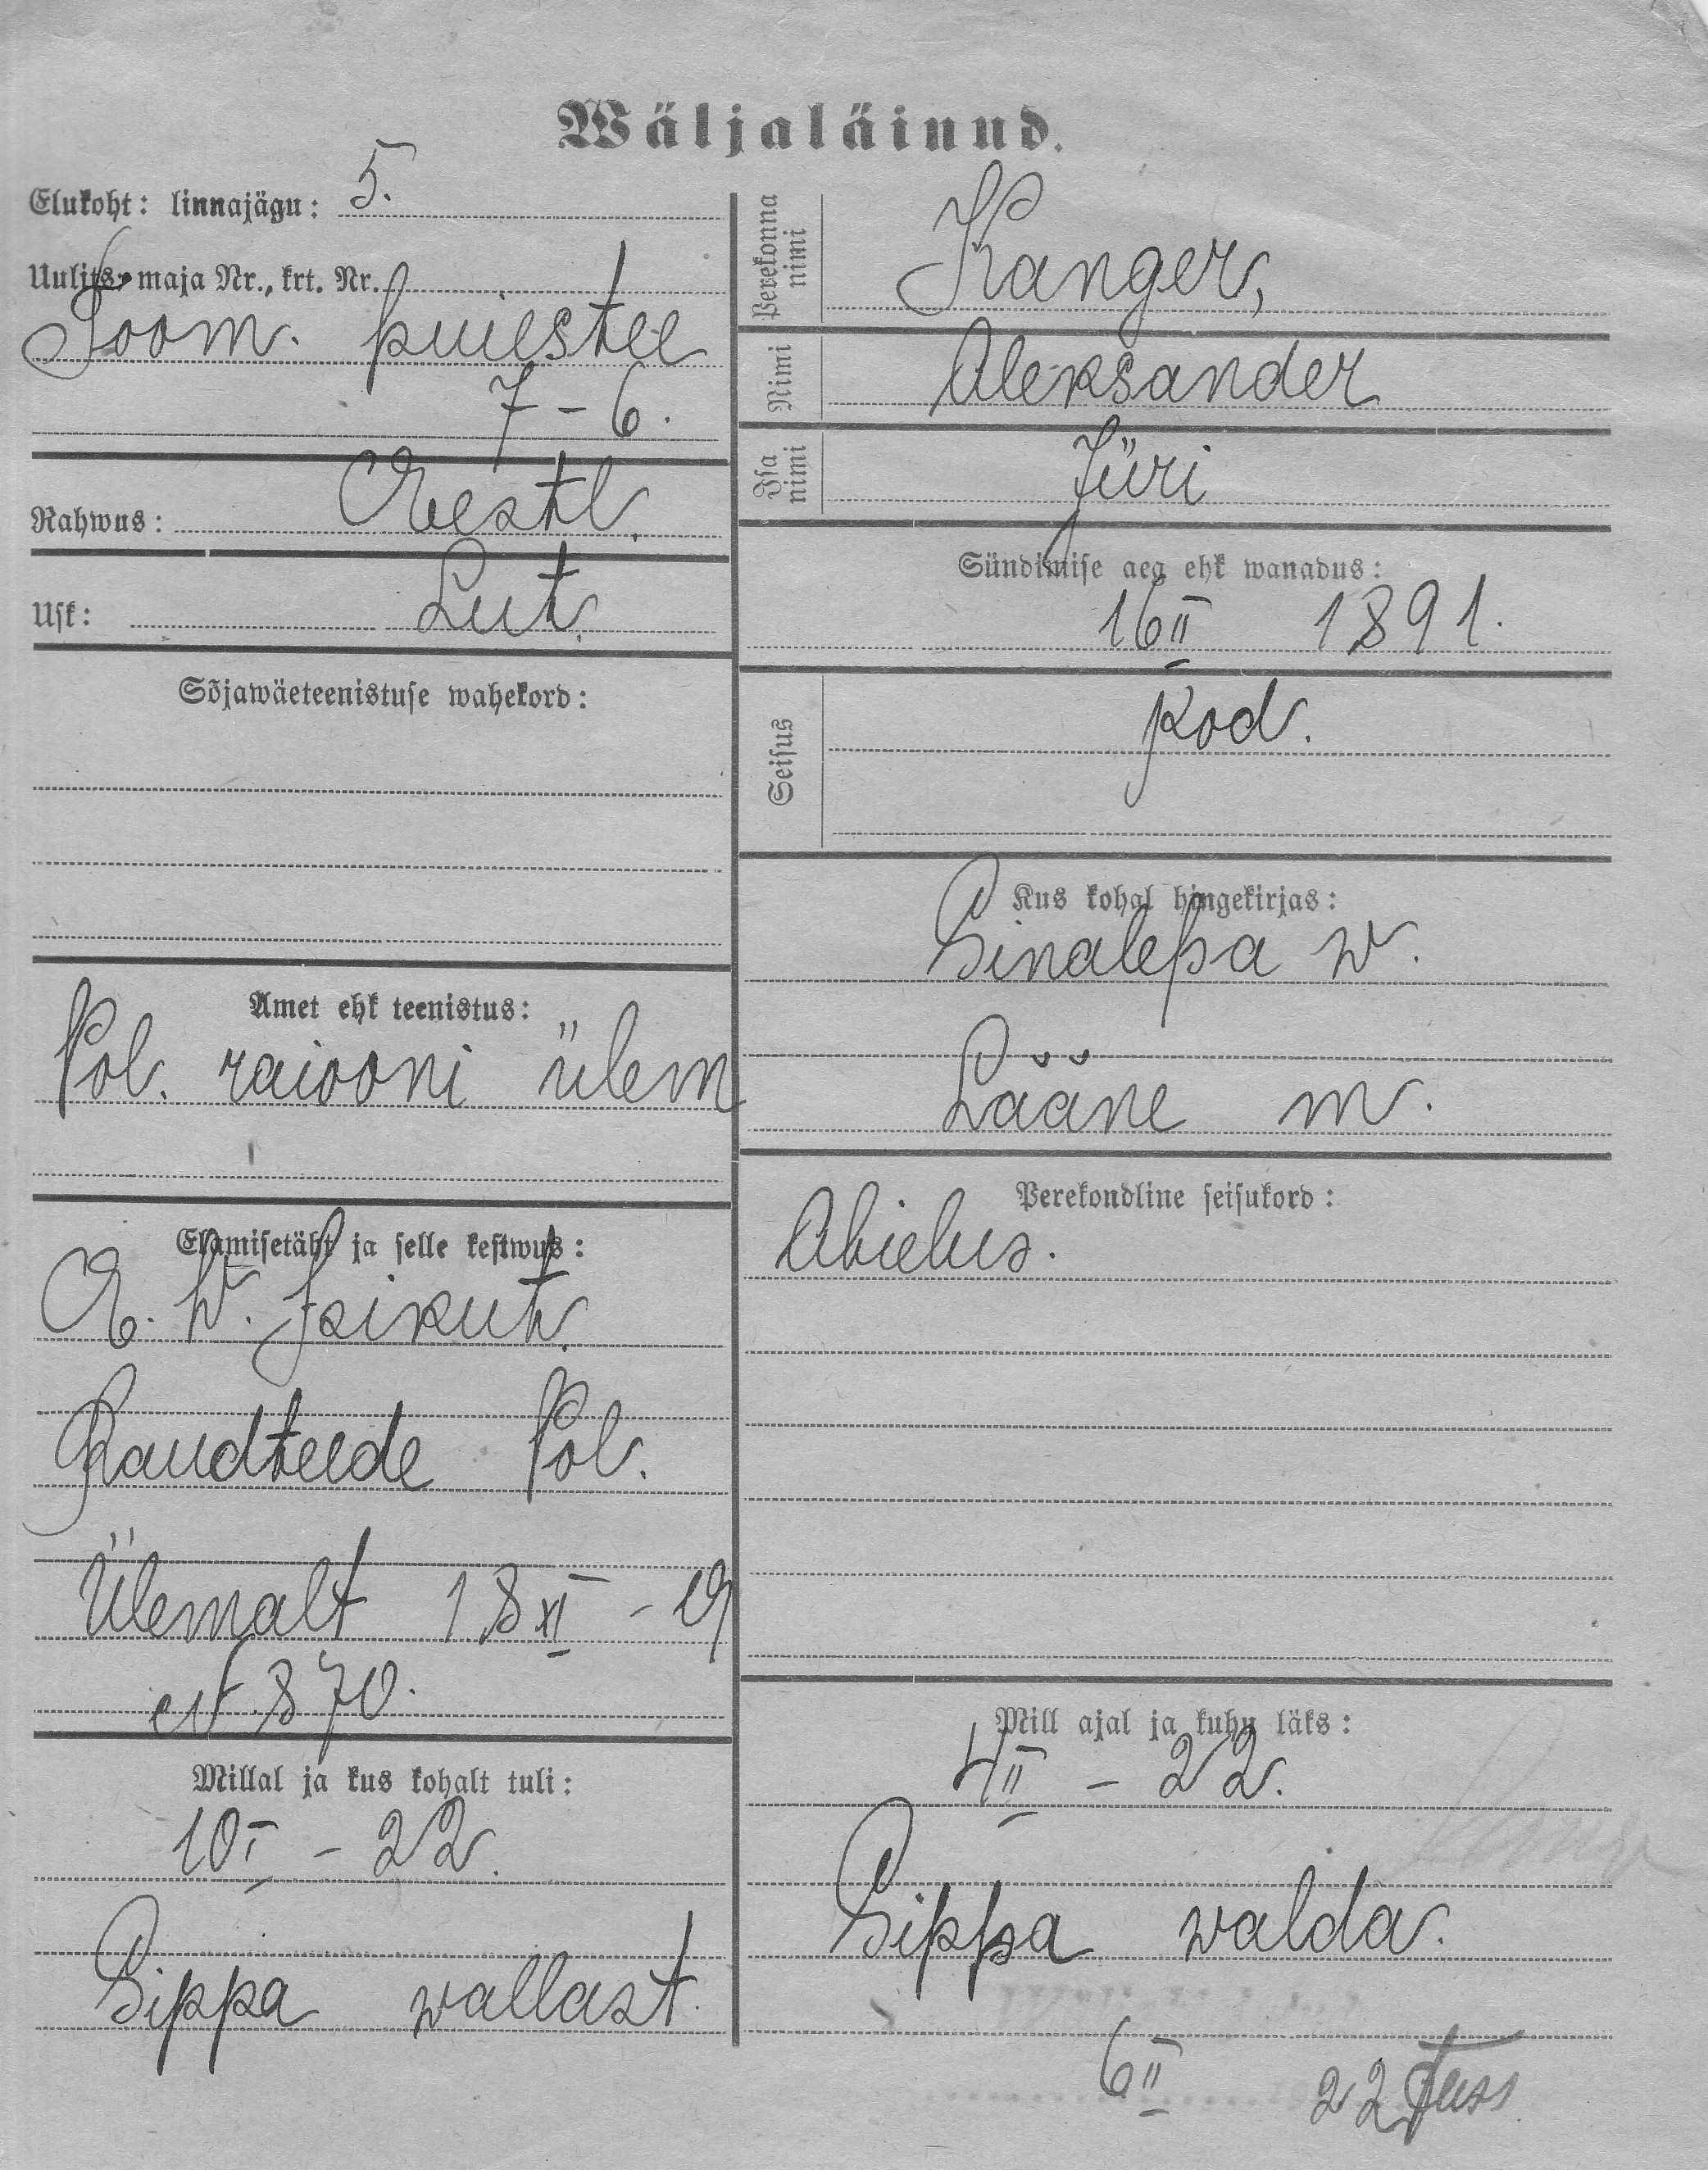 Wäljaläinud.
Elukoht: linnajägu: 5.
Uulits, maja Nr., krt. Nr.
Toom. puiestee
7 - 6.
Rahwus: Eestl.
Usk: Lut.
Sõjawäeteenistuse wahekord:
Amet ehk teenistus:
Pol. raiooni ülem
Elamisetäht ja selle kestwus:
E. W. Isikut.
Raudteede Pol.
Ülemalt 18 XI - 19
№ 870.
Millal ja kus kohalt tuli:
10 I - 22.
Sippa wallast.
Perekonna nimi
Kanger,
Nimi
Aleksander
Isa nimi
Jüri
Sündimise aeg ehk wanadus:
16 II 1891.
Seisus
kod.
Kus kohal hingekirjas:
Sinalepa w.
Lääne m.
Perekondline seisukord:
Abielus.
Mill ajal ja kuhu läks:
4 II - 22.
Sippa walda.
6 II 22